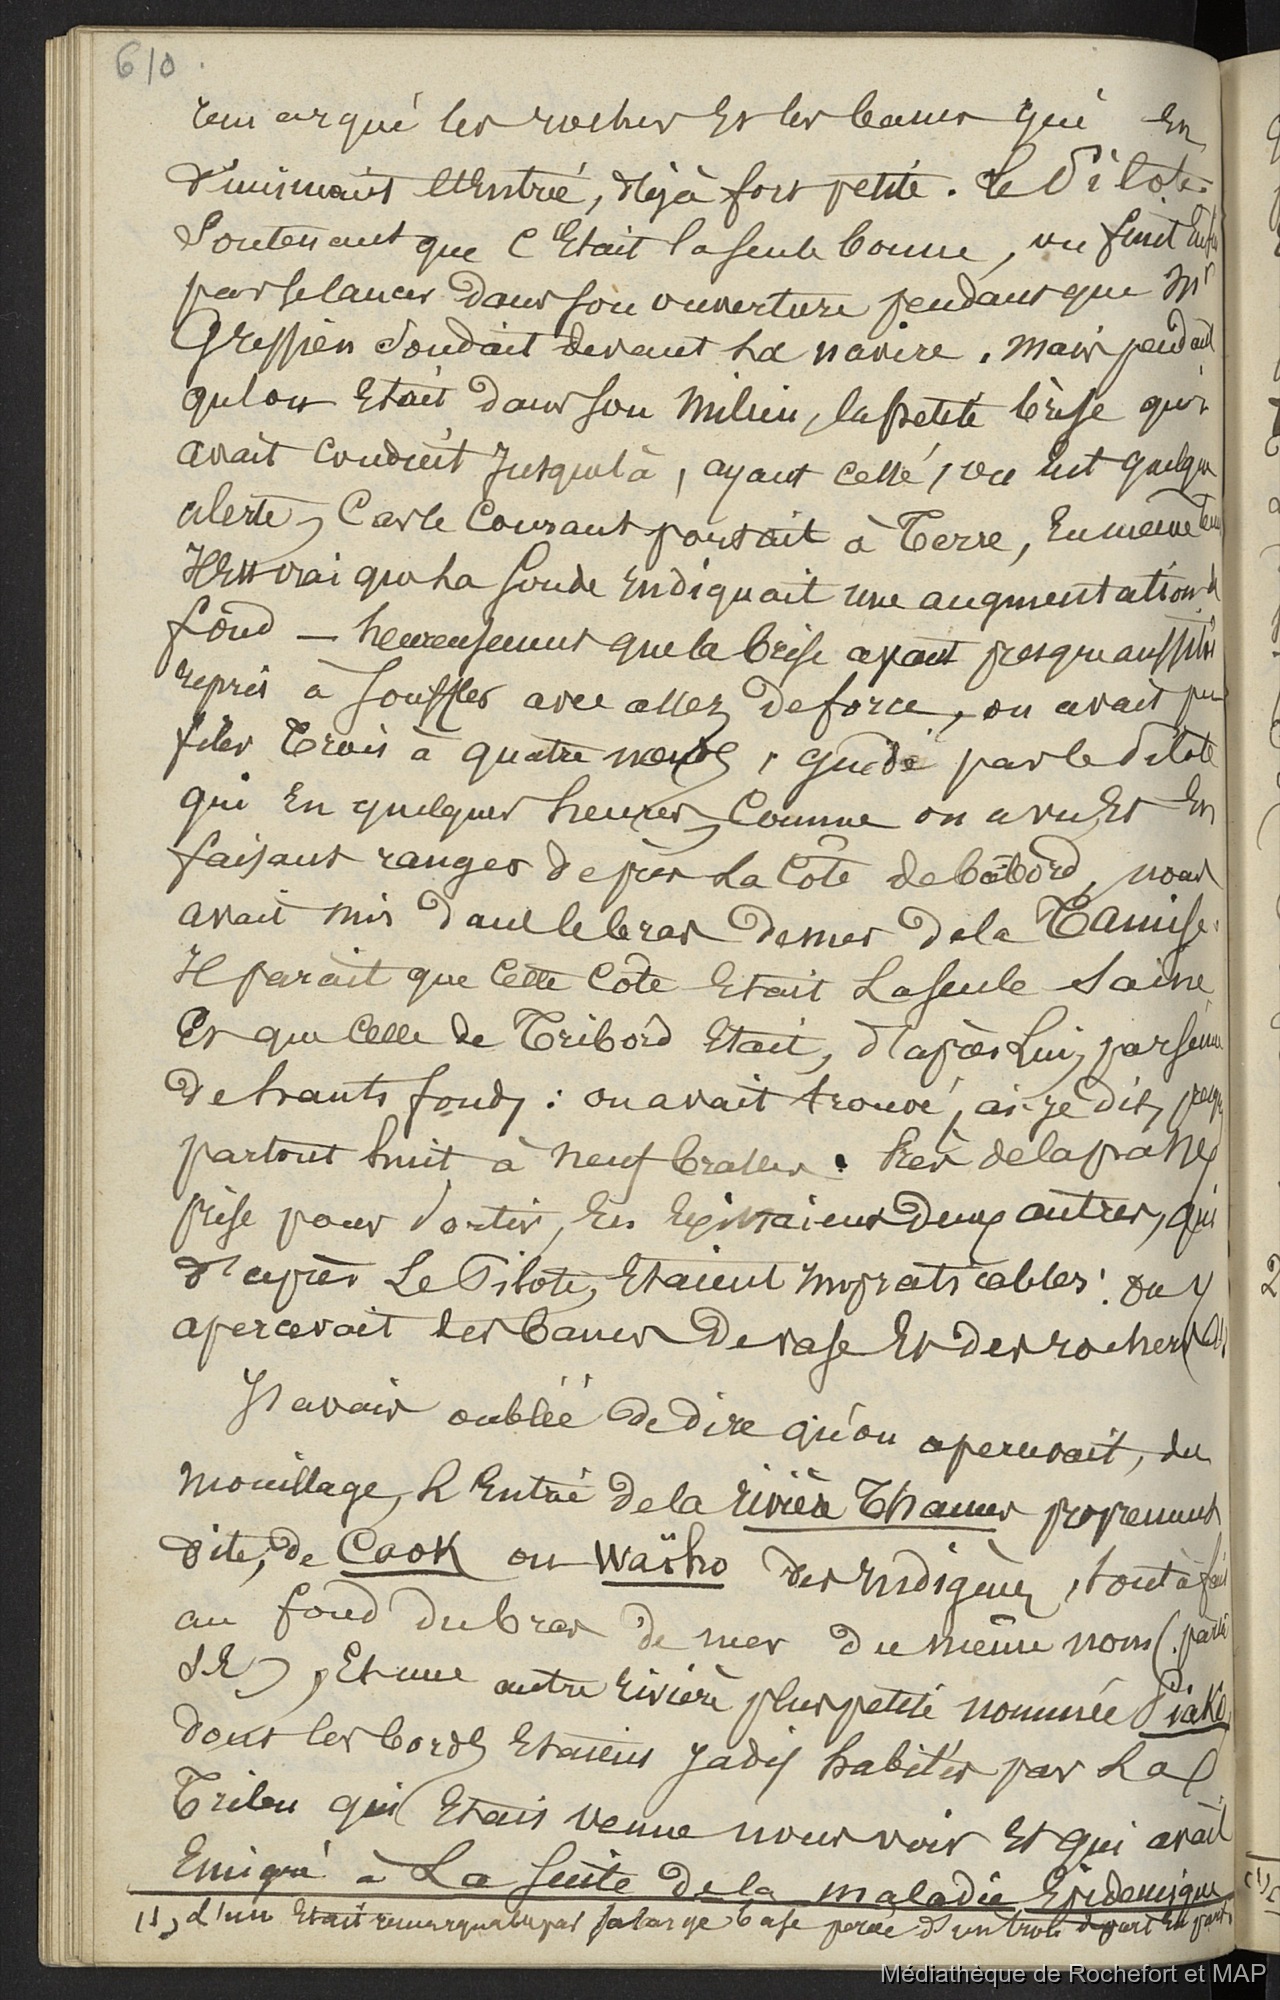 610.
remarqué les rochers Et les bancs qui En
diminuait l'Entrée, déjà fort petite. Le Pilote
Soutenant que C'Etait la seule bonne, on finit Enfin
par se lancer dans son ouverture pendant que Mr
Gressien Sondait devant La navire. Mais pendant
qu'on Etait dans son Milieu, la petite brise qui
avait conduit Jusque là, ayant cessé, on Eut quelque
alerte, Car le Courant portait à Terre, En même tems
Il Est vrai que La Sonde Indiquait une augmentation de
fond — heureusement que la brise ayant presqu'aussitôt
repris à souffler avec assez de force, on avait pu
filer Trois à quatre nœuds, guidé par le Pilote
qui En quelques heures, Comme on a vu, Et En
faisant ranger de près La Côte de bâbord, nous
avait mis dans le bras de mer de la Tamise.
Il parait que Cette Côte Etait La seule Saine
Et que Celle de Tribord Etait, d'après Lui, parsemée
de hauts fonds : on avait trouvé, ai-je dit, presque
partout huit à neuf brasses. Près de la passe
prise pour sortir, En Existaient deux autres, qui
d'après Le Pilote, Etaient Impraticables : on y
apercevait des bancs De vase Et des rochers (1).
J'avais oublié de dire qu'on apercevait, du
Mouillage, L'Entrée de la rivière Thames proprement
dite, de Cook ou Waïho des Indigènes, tout à fait
au fond du bras de mer du même nom (partie
S.E), Et une autre rivière plus petite nommée Piako,
dont les bords Etaient Jadis habités par La
Tribu qui Etait venue nous voir Et qui avait
Emigré à La Suite de la maladie Epidemique
(1) L'un Etait remarquable par sa large base percée d'un trou de part En part.
Médiathèque de Rochefort et MAP